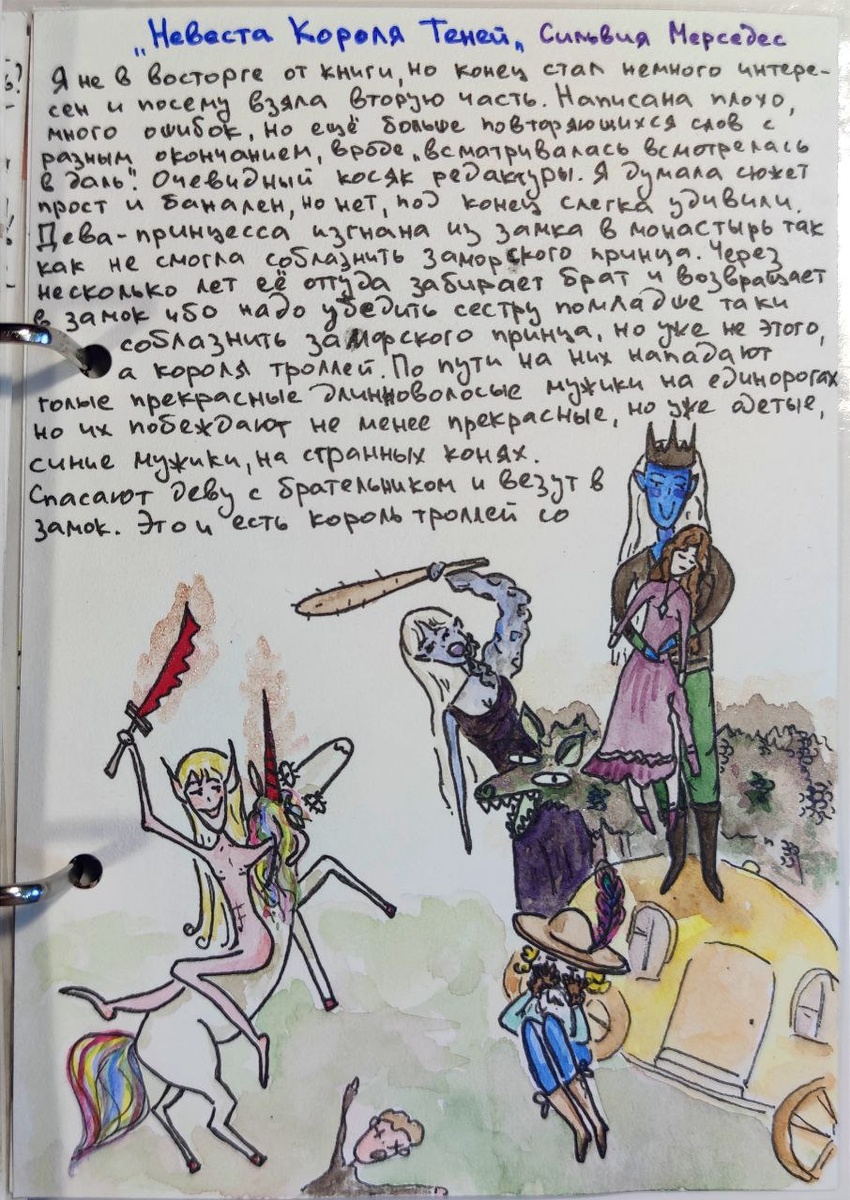 „Невеста Короля Теней„ Сильвия Мерседес
Я не в восторге от книги, но конец стал немного интере-
сен и посему взяла вторую часть. Написана плохо,
много ошибок, но ещё больше повторяющихся слов с
разным окончанием, вроде „всматривалась всмотрелась
в даль". Очевидный косяк редактуры. Я думала сюжет
прост и банален, но нет, под конец слегка удивили.
Дева-принцесса изгнана из замка в монастырь так
как не смогла соблазнить заморского принца. Через
несколько лет её оттуда забирает брат и возвращает
в замок ибо надо убедить сестру помладше таки
соблазнить заморского принца, но уже не этого,
а короля троллей. По пути на них нападают
голые прекрасные длинноволосые мужики на единорогах
но их побеждают не менее прекрасные, но уже одетые,
синие мужики, на странных конях.
Спасают деву с брательником и везут в
замок. Это и есть король троллей со